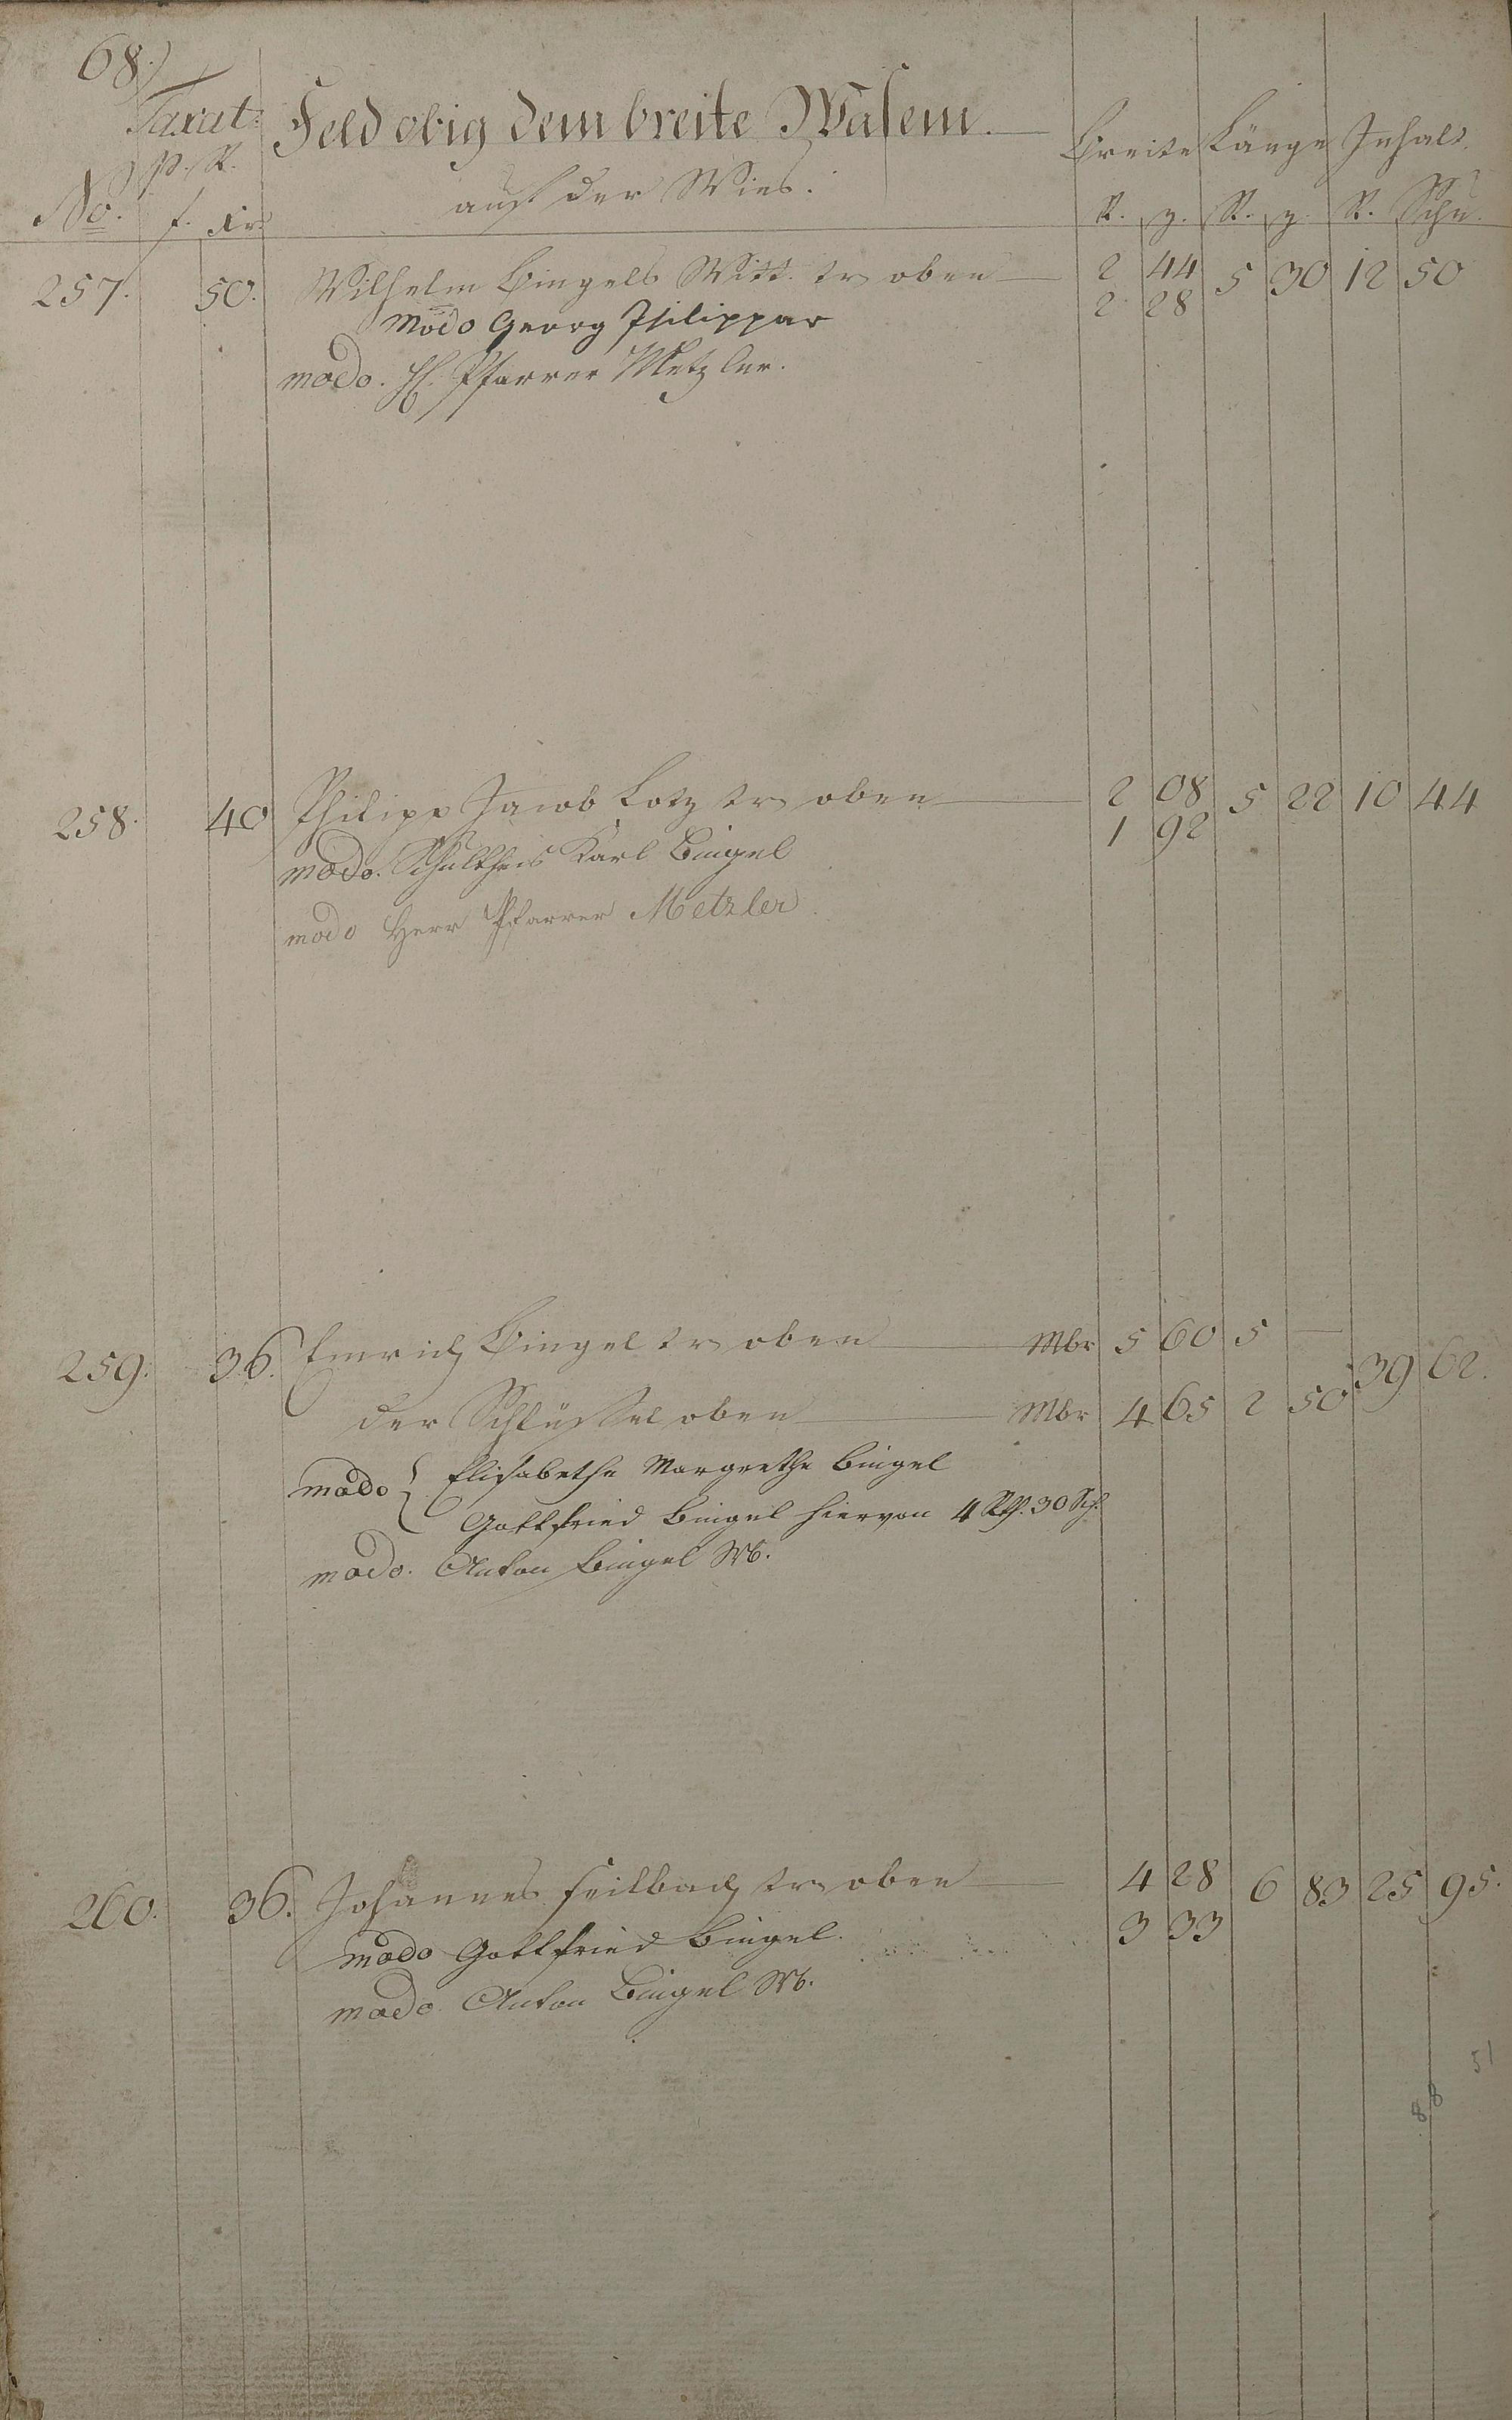 68.
Taxat: Feld obig dem breite Wasem. Breite Länge Inhalt
p. R. auf der Wies.
No. f. xr. R. z. R. z. R. Schu.
257. 50. Wilhelm Bingels Witt. tr oben 2 44 5 30 12 50
modo Georg Philippar 2 28
modo. H. Pfarrer Metzler.
258. 40 Philipp Jacob Lotz tr oben 2 08 5 22 10 44
modo. Schultheis Karl Bingel 1 92
modo Herr Pfarrer Metzler.
259. 36. Emrich Bingel tr oben Mbr 5 60 5 — 39 62.
der Schlüssel oben Mbr 4 65 2 50
modo { Elisabetha Margretha Bingel
Gottfried Bingel hiervon 4 Rth. 30 Sch.
modo. Anton Bingel W.
260. 36. Johannes Feilbach tr oben 4 28 6 83 25 95.
modo Gottfried Bingel. 3 33
modo. Anton Bingel W.
51
88